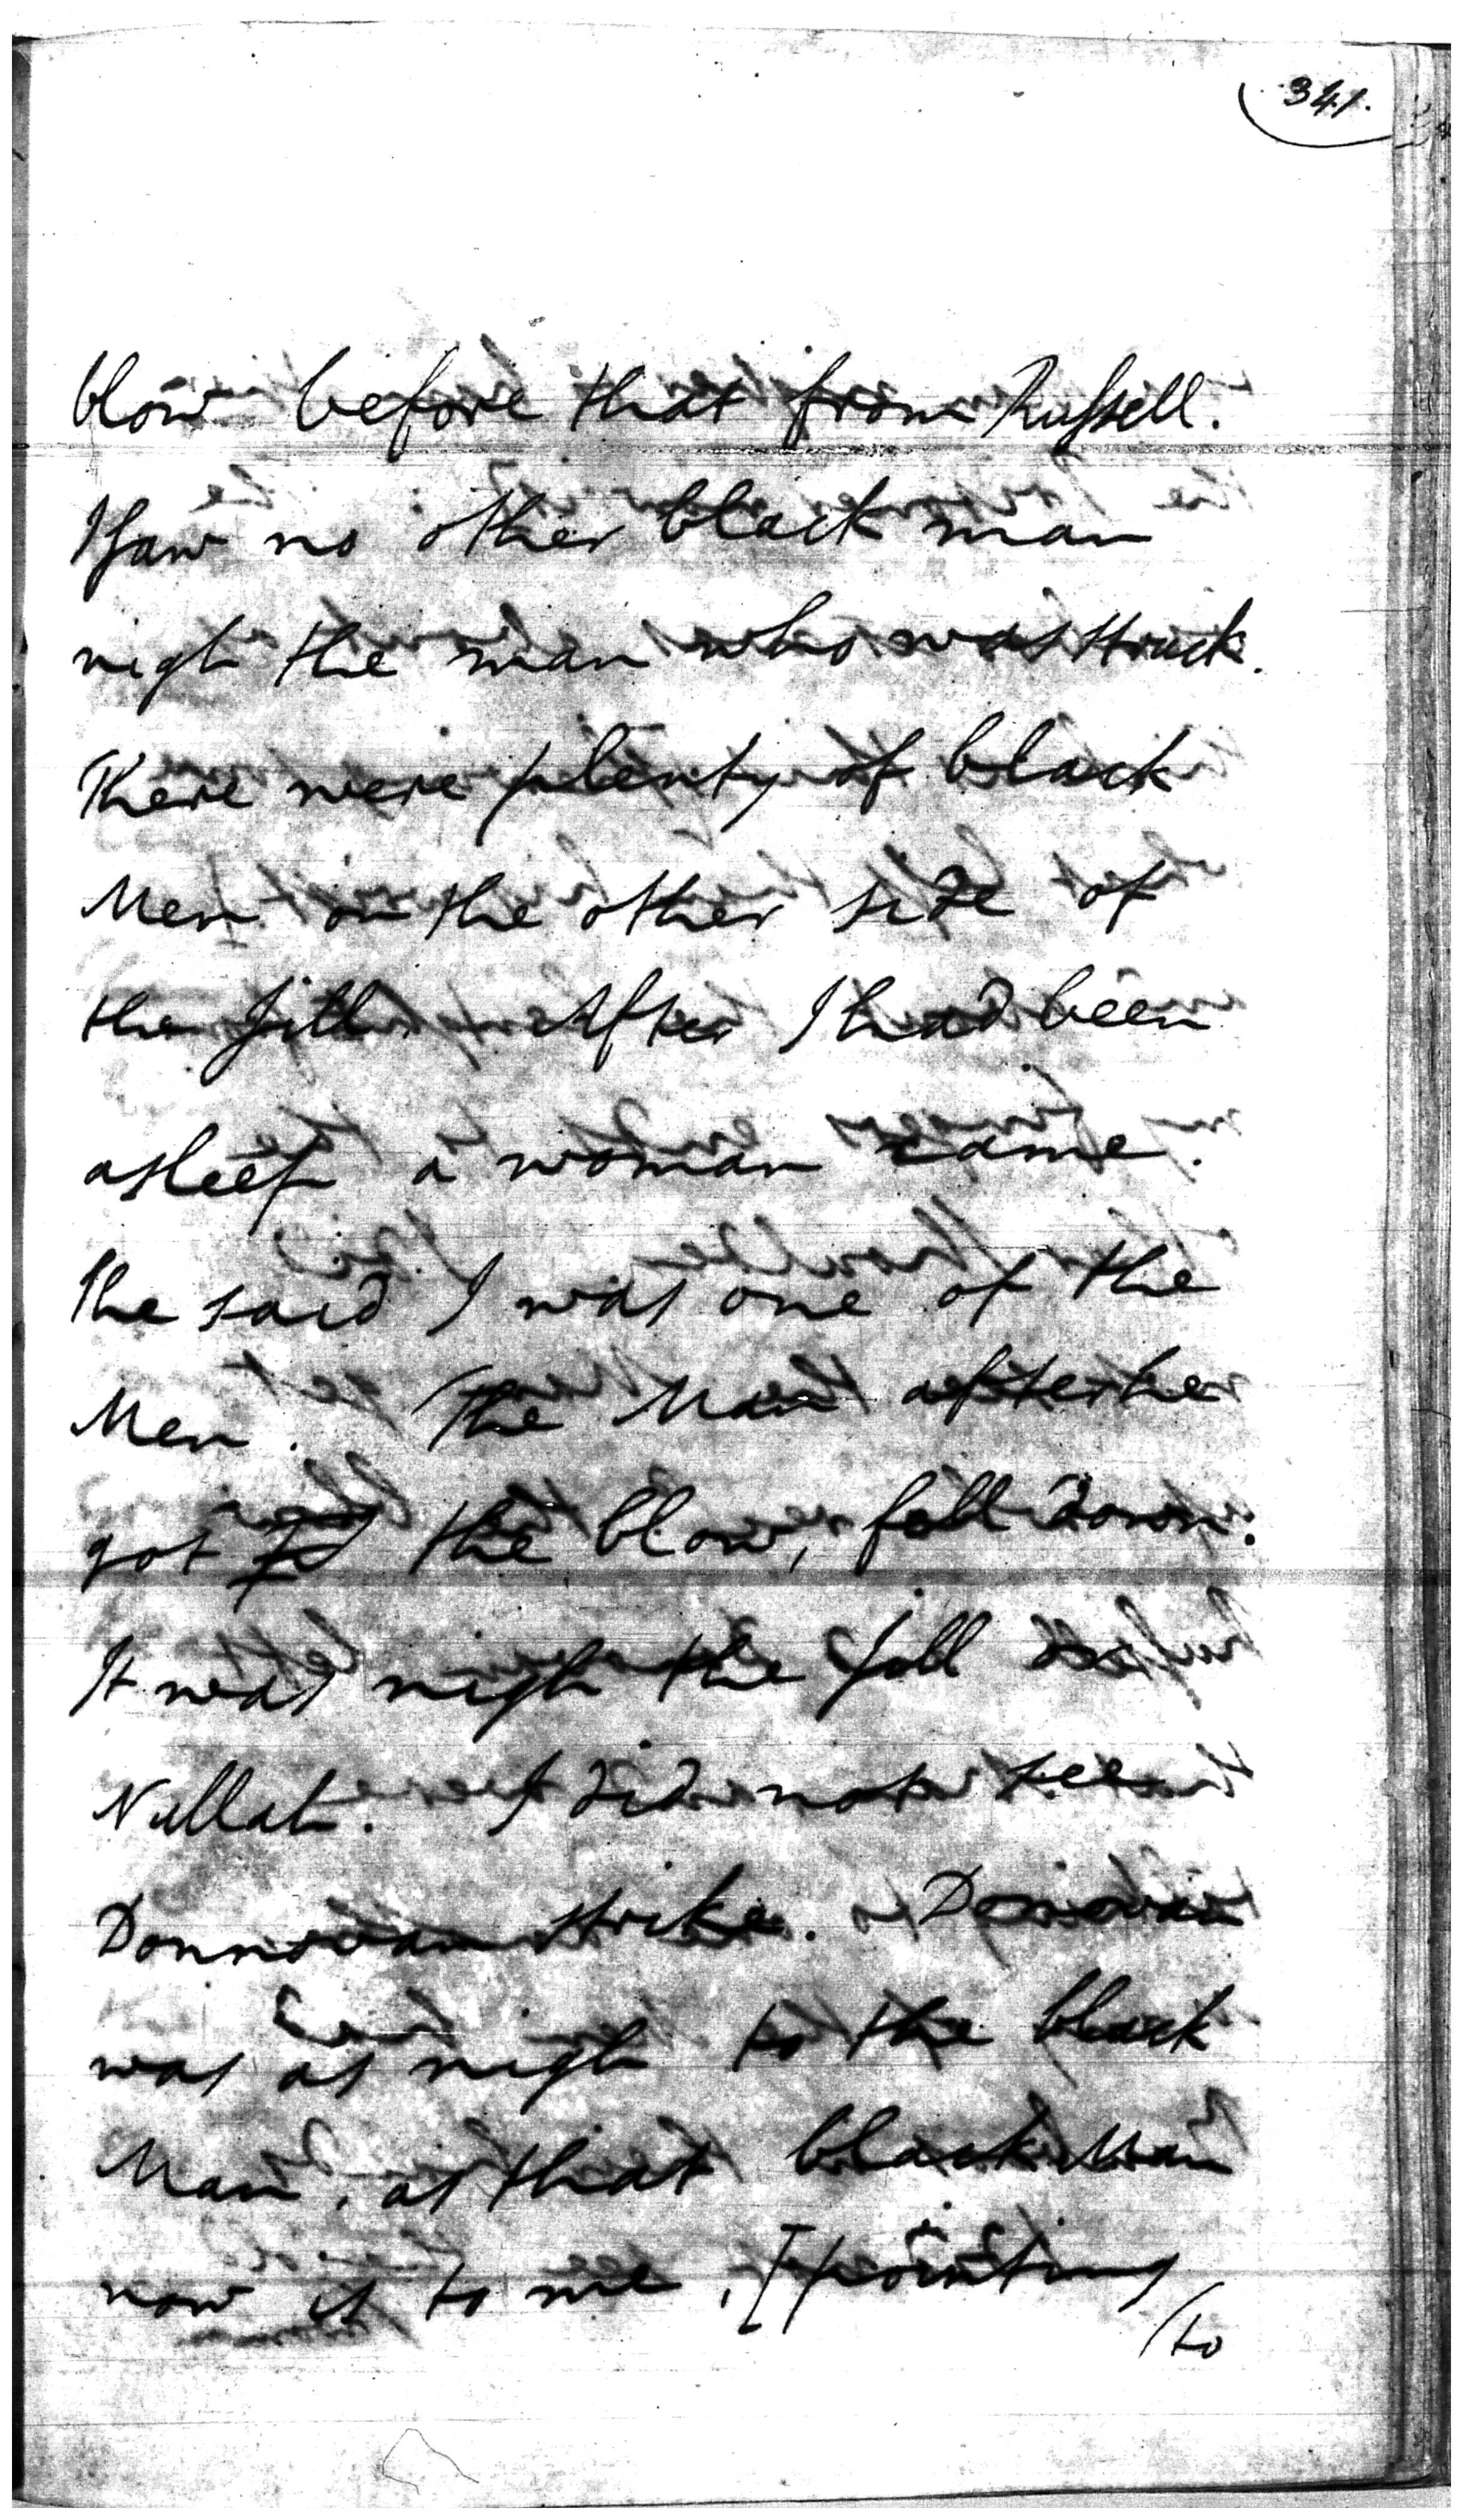 341.
blow before that from Russell.
I saw no other black man
nigh the man who was struck.
There were plenty of black
Men on the other side of
the Jill. After I had been
asleep a woman came.
She said I was one of the
Men. The Man after he
got the blow, fell down.
It was nigh the Jill
Nullah. I did not see
Donnovan strike. Donovan
was as nigh to the black
Man, as that black Man
now is to me, [pointing
/to